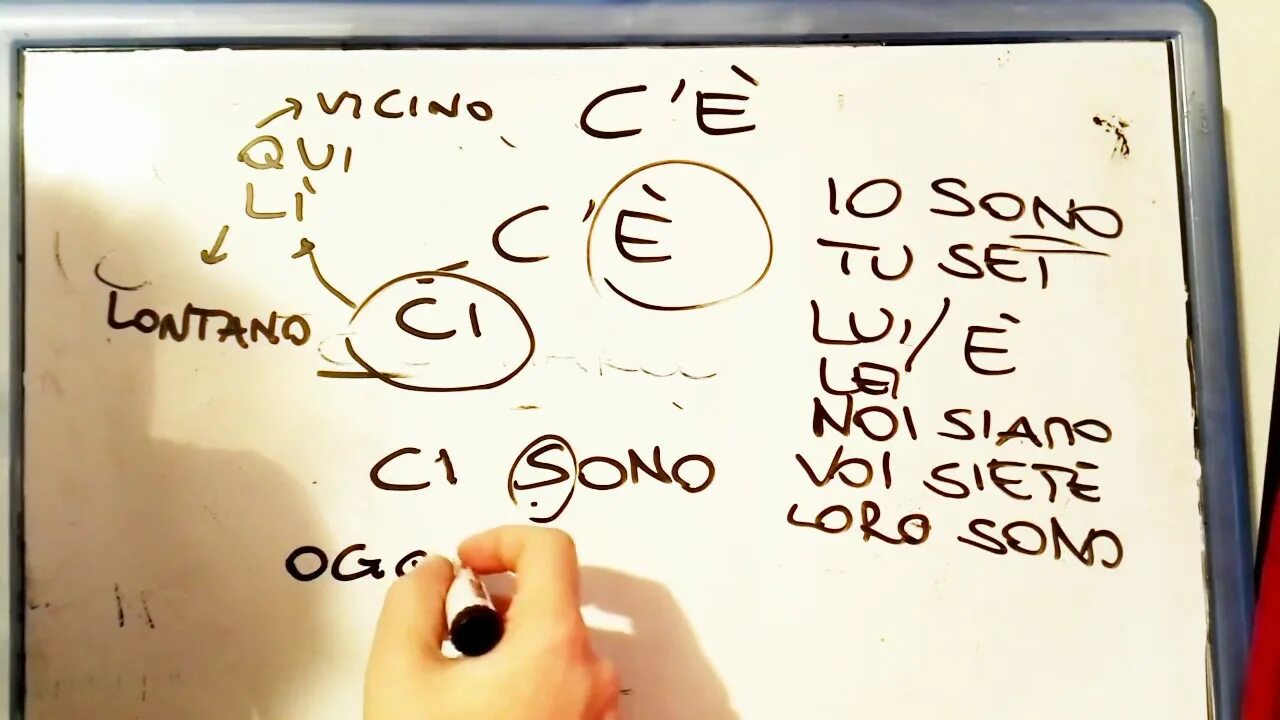 C'È
VICINO
QUI
LÌ
LONTANO
C'È
CI
CI SONO
IO SONO
TU SEI
LUI/ È
LEI
NOI SIAMO
VOI SIETE
LORO SONO